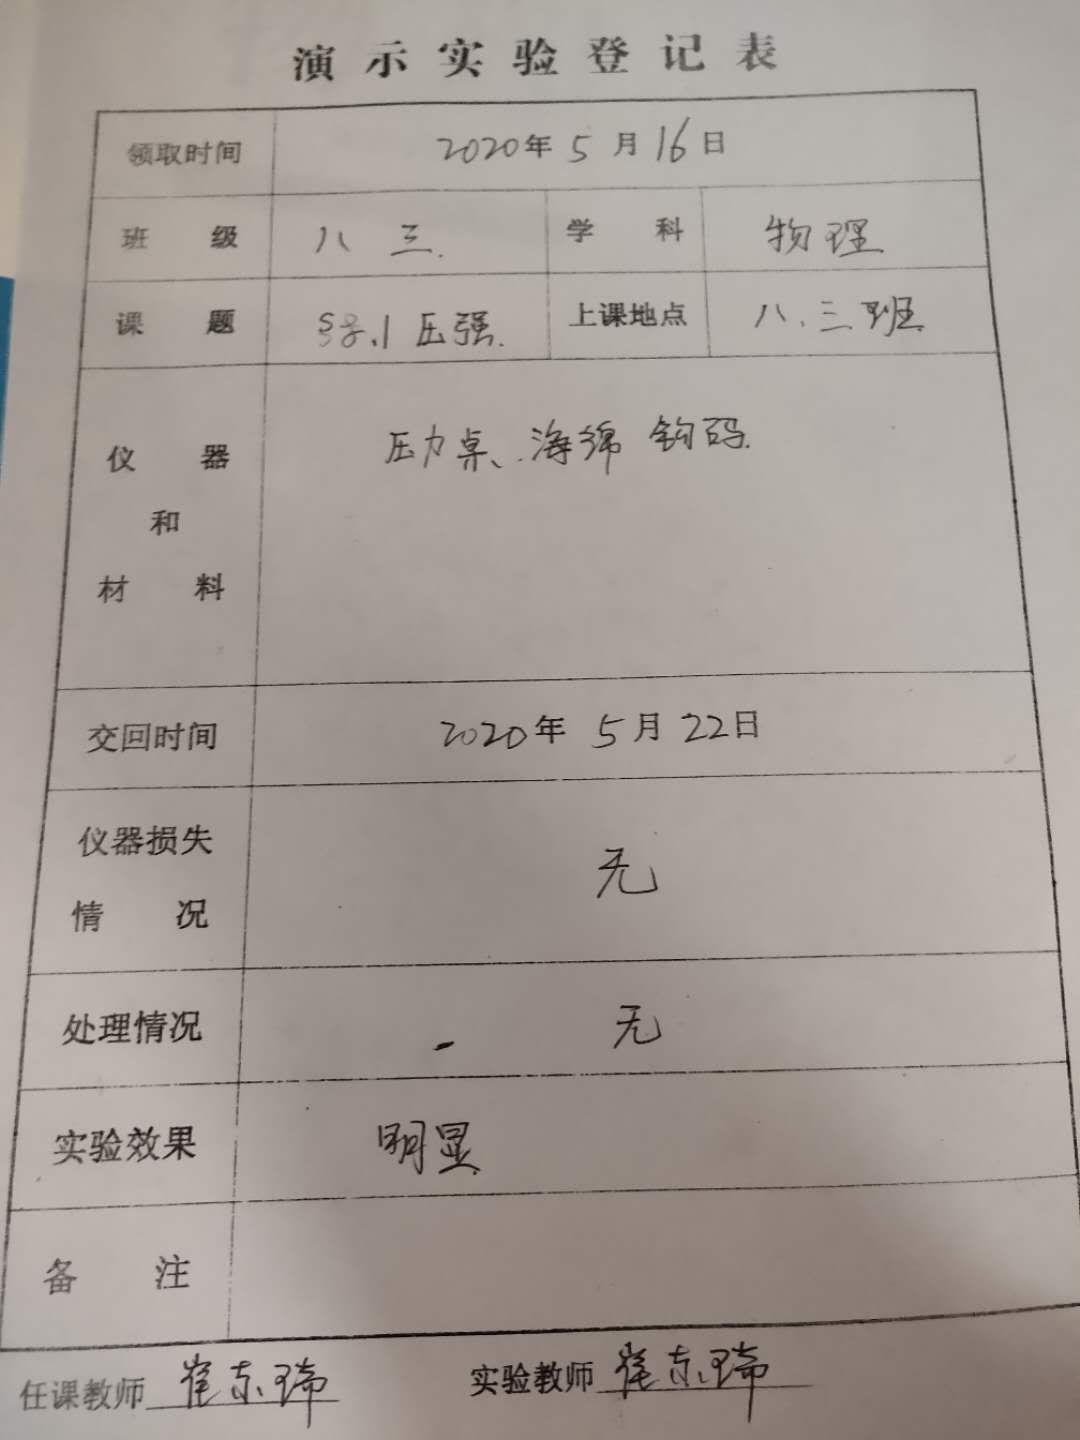 演示实验登记表
领取时间 2020年5月16日
班级 八三. 学科 物理
课题 §8.1压强. 上课地点 八.三班
仪器和材料 压力桌、海绵 钩码.
交回时间 2020年5月22日
仪器损失情况 无
处理情况 无
实验效果 明显
备注
任课教师 崔东瑞 实验教师 崔东瑞